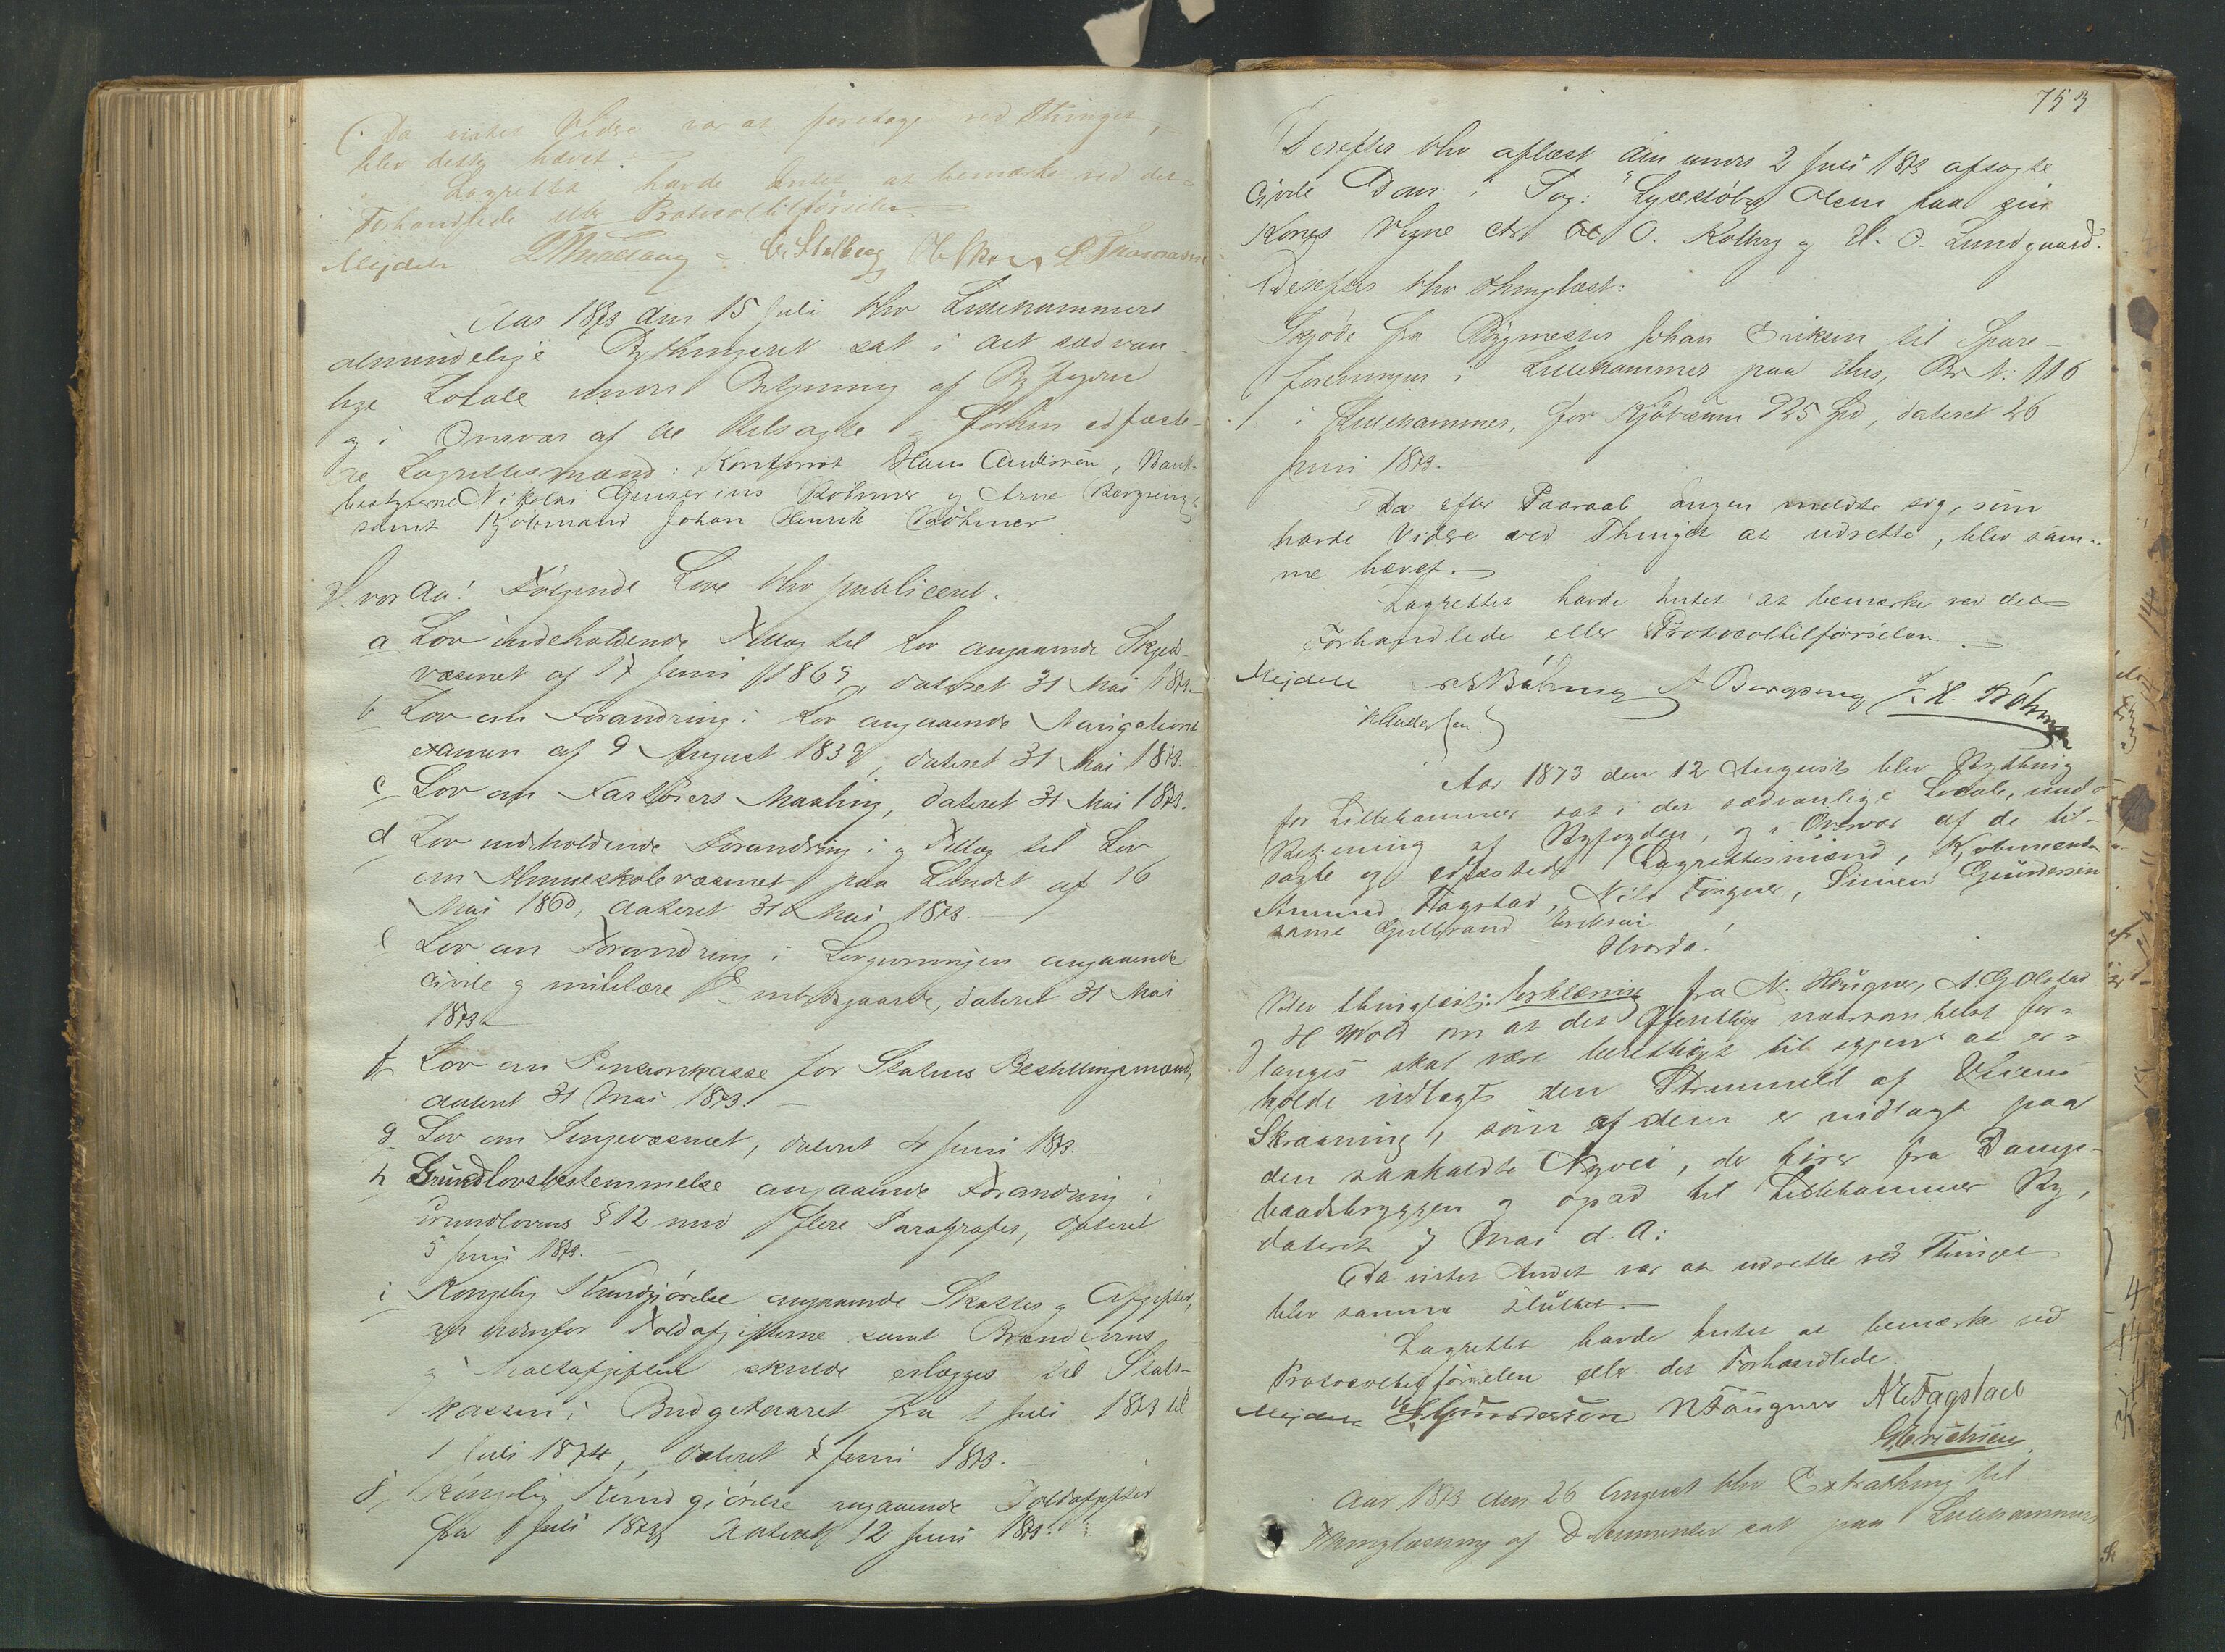 Da intet Videre var at foretage ved Thinget,
blev dette hævet.
Lagrettet havde Intet at bemærke ved det
Forhandlede eller Protocoltilførselen.
Mejdell C. Stalberg
Aar 1873 den 15 Juli blev Lillehammers
almindelige Bythingsret sat i det sædvan-
lige Lokale under Betjening af Byfogden
og i Overvær af de tilsagte og forhen edfæste-
de Lagrettesmænd: Kontorist Hans Andersen, Bank-
bestyrerne Nikolai Gunerius Bøhmer og Arne Bergseng
samt Kjøbmand Johan Henrik Bøhmer.
Hvor da: Følgende Love blev publiceret.
a Lov indeholdende Tillæg til Lov angaaende Skyds-
væsenet af 17 Juni 1869, dateret 31 Mai 1873.
b Lov om Forandring i Lov angaaende Navigations
examen af 9 August 1839, dateret 31 Mai 1873.
c Lov om Fartøiers Maaling, dateret 31 Mai 1873.
d Lov indeholdende Forandring i og Tillæg til Lov
om Almueskolevæsenet paa Landet af 16
Mai 1860, dateret 31 Mai 1873.
e Lov om Forandring i Lovgivningen angaaende
civile og militære Embedsgaarde, dateret 31 Mai
1873.
f Lov om Pensionskasse for Statens Bestillingsmænd,
dateret 31 Mai 1873.
g Lov om Pengevæsenet, dateret 4 Juni 1873.
h Grundlovsbestemmelse angaaende Forandring i
Grundlovens § 12 med flere Paragrafer, dateret
5 Juni 1873.
i Kongelig Kundgjørelse angaaende Skatter og Afgifter,
der udenfor Toldafgifterne samt Brændevins
og Maltafgiften skulde erlægges til Stats-
kassen i Budgetaaret fra 1 Juli 1873 til
1 Juli 1874, dateret 7 Juni 1873.
j, Kongelig Kundgjørelse angaaende Toldafgifter
fra 1 Juli 1873, dateret 12 Juni 1873.
753
Derefter blev aflæst den under 2 Juli 1873 afsagte
civile Dom i Sag: Olsen paa sin
Kones Vegne ctr. O. Kolberg og O. Lundgaard.
Derefter blev thinglæst:
Skjøde fra Bygmester Johan Eriksen til Spare-
foreningen i Lillehammer paa Hus, Br N: 116
i Lillehammer, for Kjøbesum 925 Spd, dateret 26
Juni 1873.
Da efter Paaraab Ingen meldte sig, som
havde Videre ved Thinget at udrette, blev sam-
me hævet.
Lagrettet havde Intet at bemærke ved det
Forhandlede eller Protocoltilførselen.
Mejdell N G Bøhmer A Bergseng J. H. Bøhmer
H Andersen
Aar 1873 den 12 August blev Bything
for Lillehammer sat i det sædvanlige Lokale, under
Betjening af Byfogden, og i Overvær af de til-
sagte og edfæstede Lagrettesmænd, Kjøbmænd
Amund Fagstad, Nils Fougner, Simen Gundersen
samt Gulbrand Eriksen.
Hvorda:
Blev thinglæst: Erklæring fra N. Fougner, A. G Olstad
og H Wold om at det Offentlige naarsomhelst for-
langes skal være berettiget til igjen at er-
holde indlagt den Strimmel af Veiens
Skraaning, som af dem er indlagt paa
den saakaldte Nyvei, der fører fra Damp-
baadsbryggen og opad til Lillehammer By,
dateret 7 Mai d. A:
Da intet Andet var at udrette ved Thinget
blev samme sluttet.
Lagrettet havde Intet at bemærke ved
Protocoltilførselen eller det Forhandlede.
Mejdell S Gundersen N Fougner A E Fagstad
G Erichsen
Aar 1873 den 26 August blev Extrathing til
Thinglæsning af Documenter sat paa Lillehammer